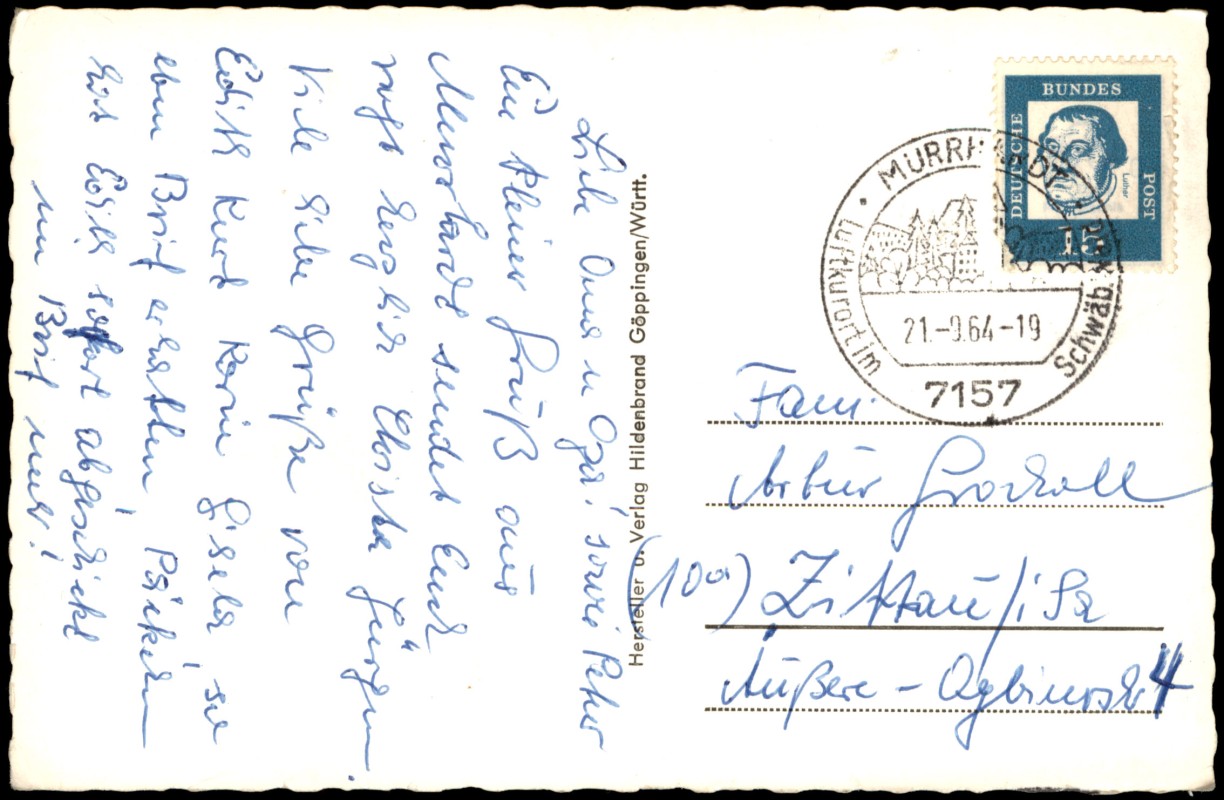 Liebe Oma u Opa! sowie Peter
Ein kleiner Gruß aus
Murrhardt sendet Euch
recht herzlich Christa Jürgen.
Viele liebe Grüße von
Edith Kurt Karin Gisela sie
eben Brief erhalten Päckchen
hat Edith sofort abgeschickt
nun Brief mehr!
Hersteller u. Verlag Hildenbrand Göppingen/Württ.
DEUTSCHE BUNDES POST
Luther
15
MURRHARDT
Luftkurort im Schwäb. Wald
21.-9.64-19
7157
Fam.
Artur
(10a) Zittau/i Sa
Äußere-Oybinerstr 4